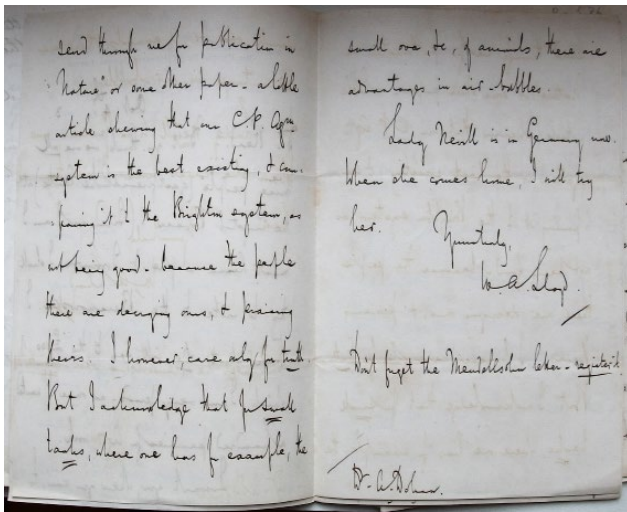 send through me for publication in
"Nature" or some other paper - a little
article shewing that our C.P. Aqm
system is the best existing, & com-
paring it to the Brighton system, as
not being good - because the people
there are decrying ours, & praising
theirs. I however, care only for truth.
But I acknowledge that for small
tanks, where one has for example, the
small ova, &c, of animals, there are
advantages in air-bubbles.
Lady Nevill is in Germany now.
When she comes home, I will try
her.
Yours truly,
W. A. Lloyd.
Don't forget the Mendelssohn letter - register'd
Dr. A. Dohrn.